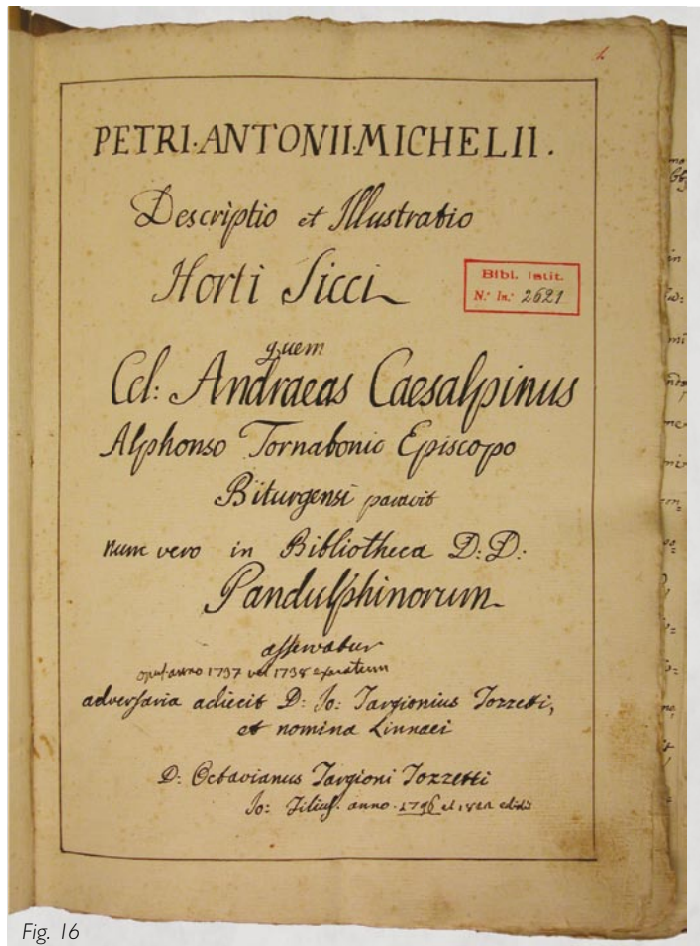 PETRI·ANTONII·MICHELII.
Descriptio et Illustratio
Horti Sicci
Bibl. Instit.
N.° In.° 2621
quem
Cel: Andraeas Caesalpinus
Alphonso Tornabonio Episcopo
Biturgensi paravit
nunc vero in Bibliotheca D: D:
Pandulphinorum
asservatur
opus anno 1737 vel 1738 exaratum
adversaria adiecit D: Jo: Targionius Tozzetti,
et nomina Linnaei
D: Octavianus Targioni Tozzetti
Jo: Filius. anno. 1796 et
Fig. 16